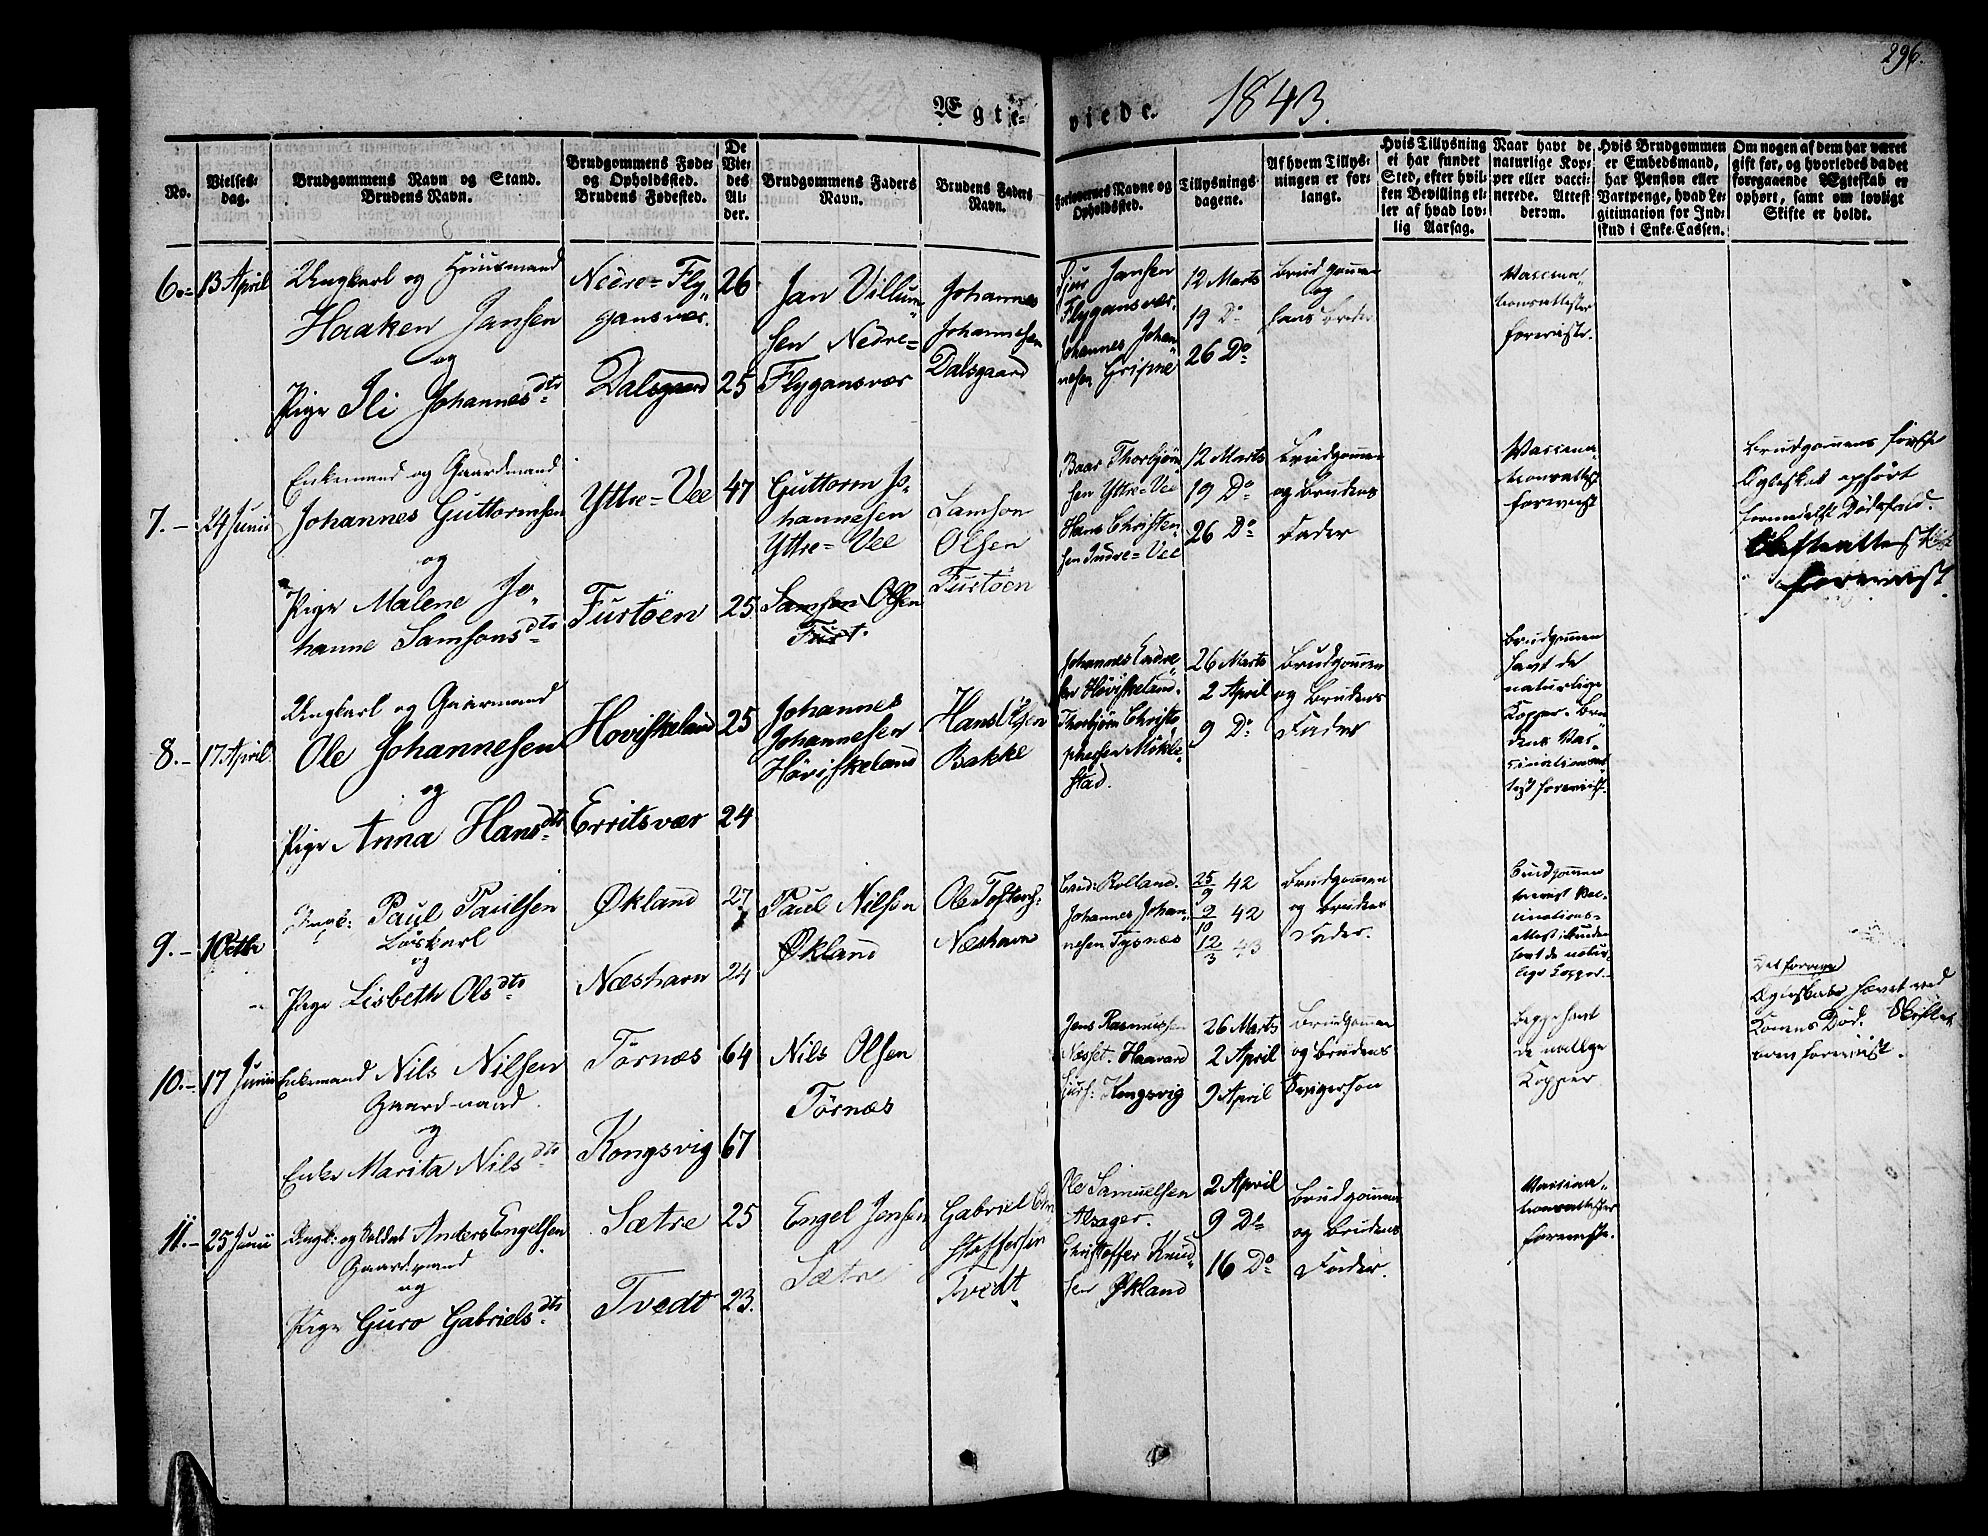 296.
Ægte-
viede.
1843.
No.
Vielses-
dag.
Brudgommens Navn og Stand.
Brudens Navn.
Brudgommens Føde-
og Opholdssted.
Brudens Fødested.
De
Vie-
des
Al-
der.
Brudgommens Faders
Navn.
Brudens Faders
Navn.
Forlovernes Navne og
Opholdssted.
Tillysnings-
dagene.
Af hvem Tillys-
ningen er for-
langt.
Hvis Tillysning
ei har fundet
Sted, efter hvil-
ken Bevilling el-
ler af hvad lov-
lig Aarsag.
Naar havt de
naturlige Kop-
per eller vacci-
nerede. Attest
derom.
Hvis Brudgommen
er Embedsmand,
har Pension eller
Vartpenge, hvad Le-
gitimation for Ind-
skud i Enke-Cassen.
Om nogen af dem har været
gift før, og hvorledes da det
foregaaende Ægteskab er
ophørt, samt om lovligt
Skifte er holdt.
6.-
13 April
Ungkarl og Huusmand
Haaken Jansen
og
Pige Ili Johannesdtr
Nedre-Fly-
gansvær.
Dalsgaard
26
25
Jan Villum-
sen Nedre-
Flygansvær
Johannes
Johannesen
Dalsgaard
Sjur Jansen
Flygansvær
Johannes Johan-
nesen Gripne
12 Marts
19 Do
26 Do
Brudgommen
og
hans Broder
Vaccina-
tionsattester
foreviste.
7.-
24 Junii
Enkemand og Gaardmand
Johannes Guttormsen
og
Pige Malene Jo-
hanne Samsonsdtr
Yttre-Vee
Furtöen
47
25
Guttorm Jo-
hannesen
Yttre-Vee
Samson Olsen
Furt.
Samson
Olsen
Furtöen
Baar Thorbjørn-
sen Yttre-Vee
Hans Christen-
sen Indre-Vee
12 Marts
19 Do
26 Do
Brudgommen
og Brudens
Fader
Vaccina-
tionsattest
forevist
Brudgommens første
Ægteskab ophørt
formedelst Dødsfald.
forevist.
8.-
17 April
Ungkarl og Gaarmand
Ole Johannesen
og
Pige Anna Hansdtr
Hoviskeland
Erritsvær
25
24
Johannes
Johannesen
Höviskeland
Hans Olsen
Bakke
Johannes Endre-
sen Höviskeland.
Thorbjörn Christo-
phersen Mökle-
stad.
26 Marts
2 April
9 Do
Brudgommen
og Brudens
Fader
Brudgommen
havt de
naturlige
Kopper. Bru-
dens Vac-
cinationsat-
test forevist.
9.-
10 Octbr
Ungk: Paul Paulsen
Löskarl
og
Pige Lisbeth Olsdtr
Økland
Næshavn
27
24
Paul Nilson
Økland
Ole
Næshavn
Rolland.
Johannes Johan-
nesen Tysnæs
25/9 42
9/10 42
12/3 43
Brudgommen
og Brudens
Fader.
Brudgommen
forevist Vac-
cinations-
attest. Bruden
havt de natur-
lige Kopper.
10.-
17 Junii
Enkemand Nils Nilsen
Gaardmand.
og
Enke Marita Nilsdtr
Törnæs
Kongsvig
64
67
Nils Olsen
Törnæs
Jens Rasmussen
Næsset. Haavard
Kongsvig
26 Marts
2 April
9 April
Brudgommen
og Brudens
Svigerson
Begge havt
de natlige
Kopper
Det forrige
Ægteskab hævet ved
Konens Död.
forevist.
11.-
25 Junii
Ungk: og Soldat Anders Engelsen
Gaardmand
og
Pige Guro Gabrielsdtr
Sætre
Tvedt
25
23.
Engel Jensen
Sætre
Gabriel
Stoffersen
Tvedt
Ole Samuelsen
Alsager.
Christoffer Knud-
sen Økland
2 April
9 Do
16 Do
Brudgommen
og Brudens
Fader.
Vaccina-
tionsattester
foreviste.